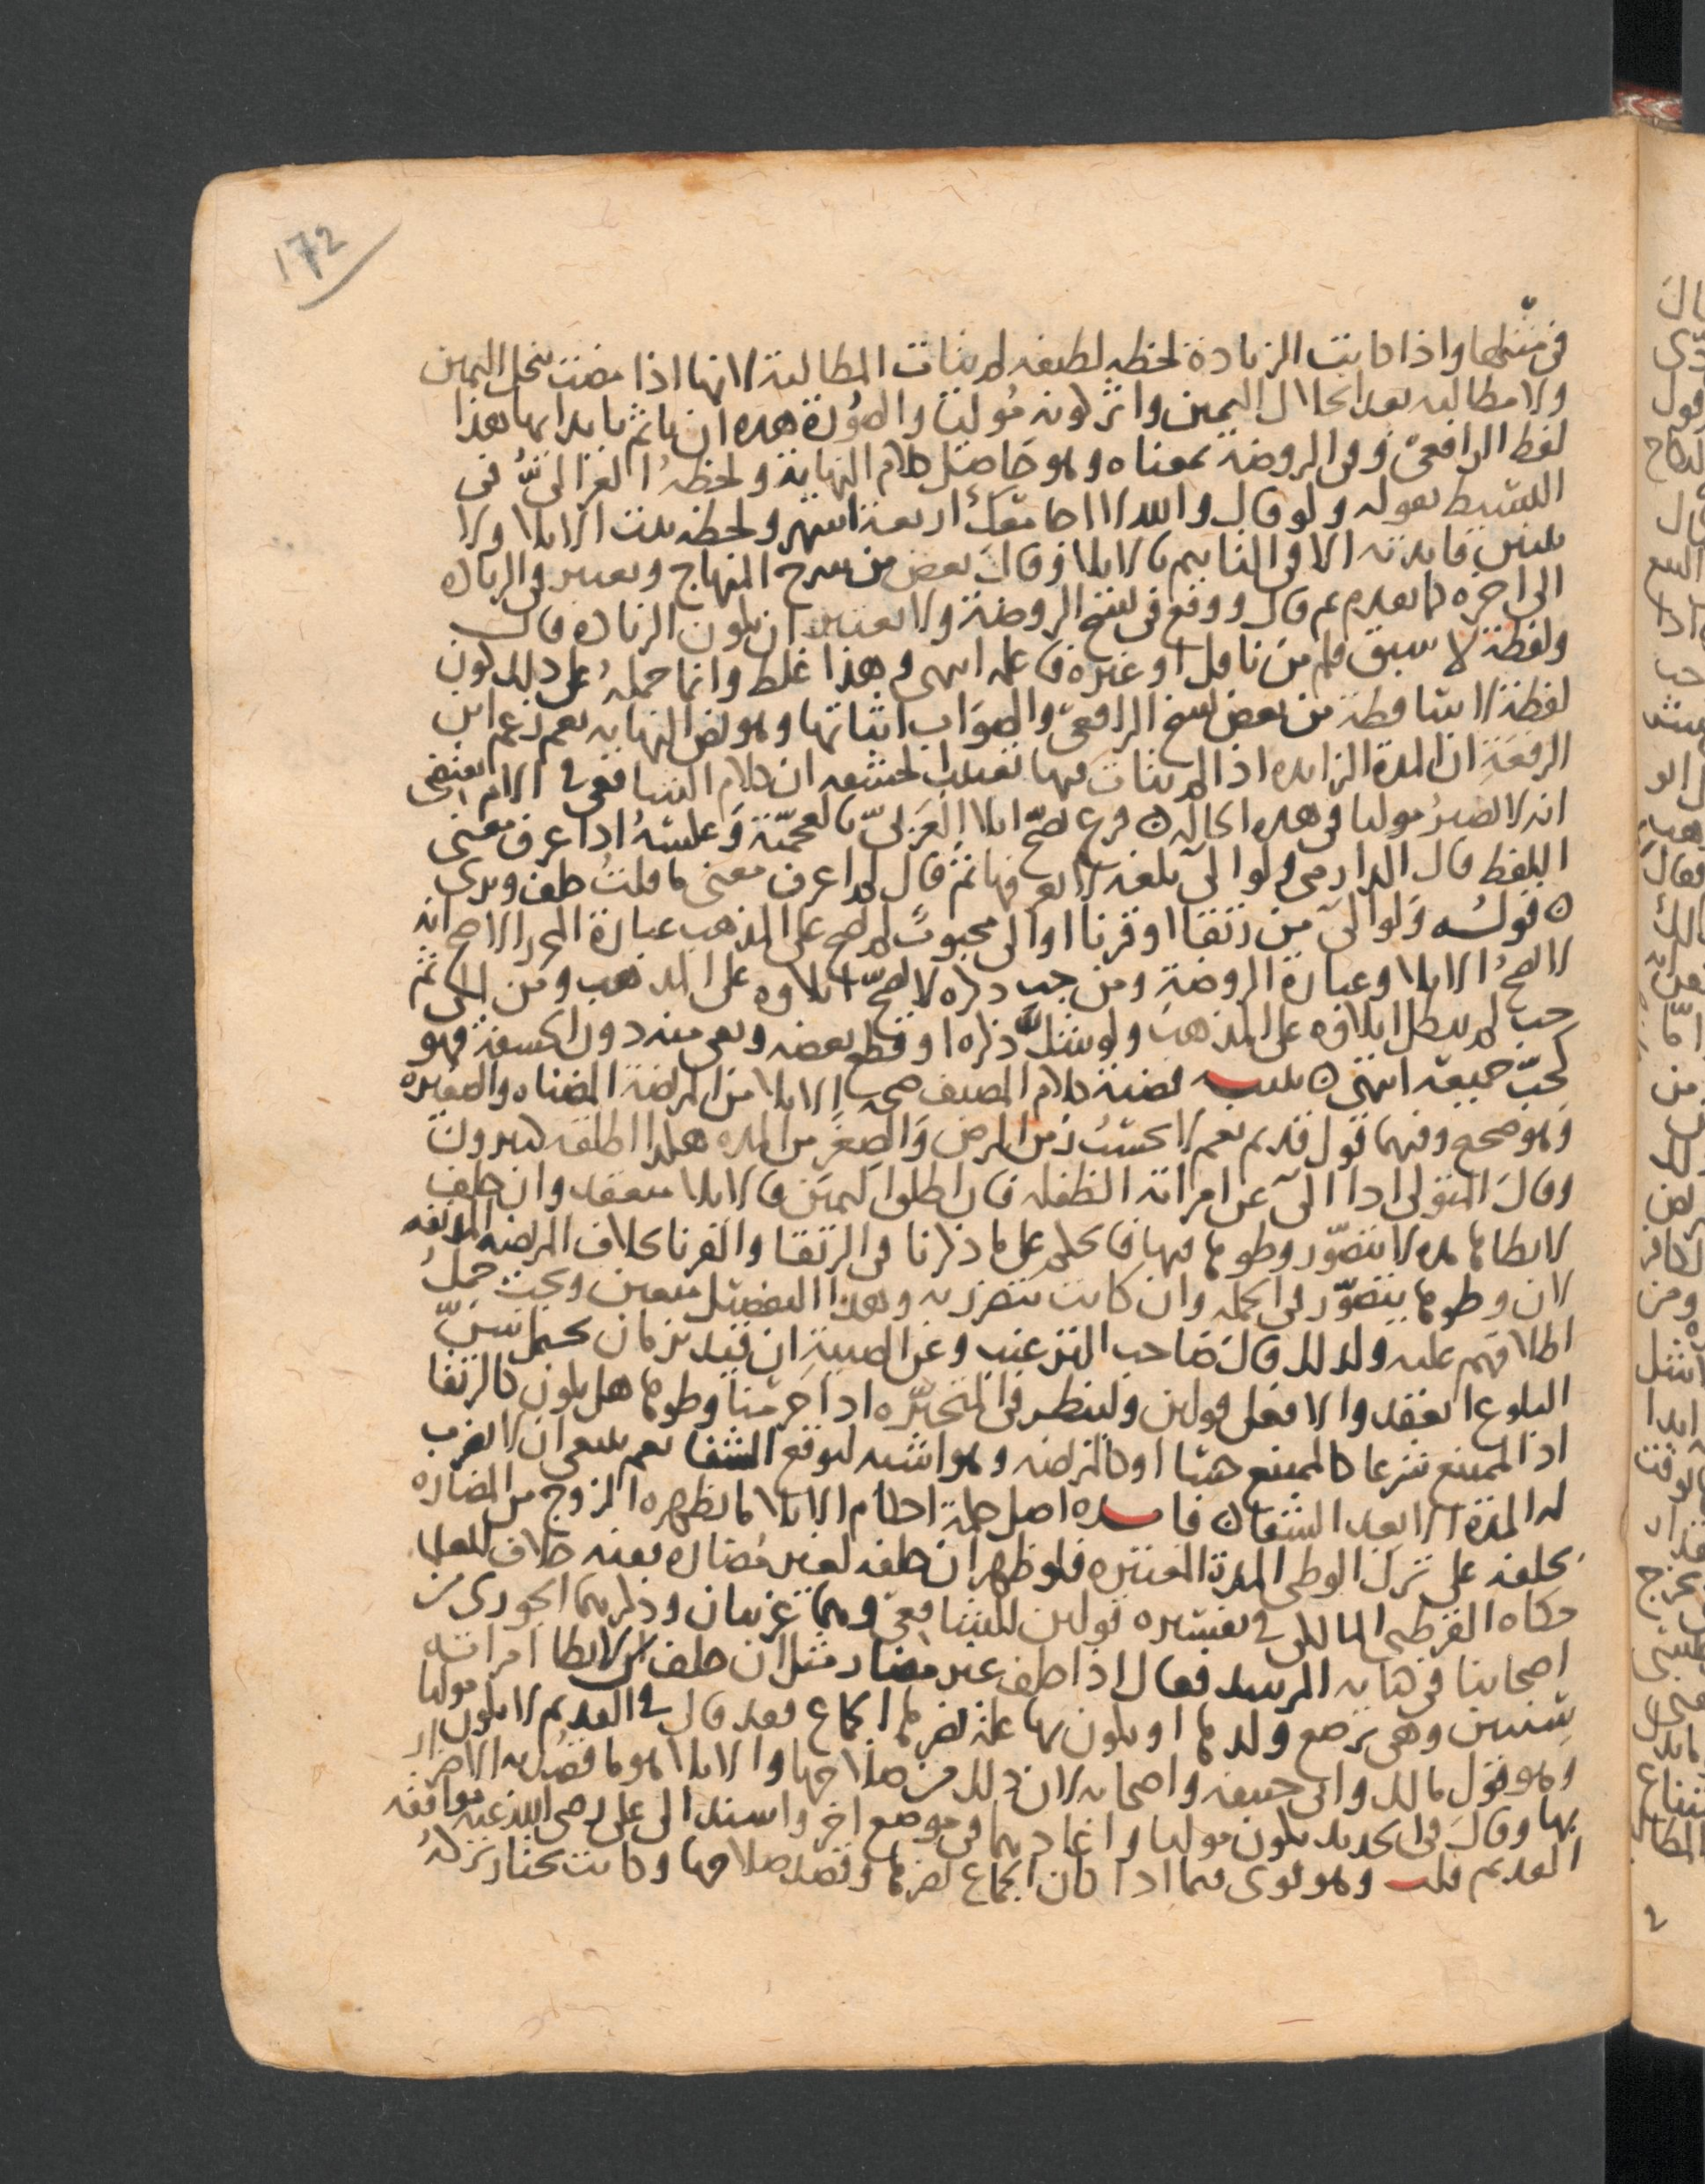 172
في مثلها واذا كانت الزيادة لحظه لطيفه لم يتات المطالبة لانها اذا مضت ينحل اليمين
ولا مطالبه بعد انحلال اليمين واثر كونه موليا والصورة هذه ان ياثم بايذايها هذا
لفظ الرافعي وفي الروضة بمعناه وهو حاصل كلام النهاية ولحظه الغزالي في
البسيط بقوله ولو قال والله لا اجامعك اربعة اشهر ولحظه ثبت الايلا ولا
فايدته الا في التاثيم بالايلا وقال بعض من شرح المنهاج ويعتبر في الزياده
الى اخره كما تقدم ثم قال ووقع في نسخ الروضة ولا يعتبر ان تكون الزياده قال
ولفظة لا سبق قلم من ناقل او غيره فاعلمه انتهى وهذا غلط وانما حمله على ذلك كون
لفظة لا ساقطة من بعض نسخ الرافعي والصواب اثباتها وهو نص النهايه نعم زعم ابن
الرفعة ان المدة الزايده اذا لم يتات فيها ان كلام الشافعي في الام يقتضي
انه لا يصير موليا في هذه الحاله ن فرع يصح ايلا العربي بالعجمية وعكسه اذا عرف معنى
اللفظ قال الدارمي ولو الى بلغه لا يعرفها ثم قال لم اعرف معنى ما قلت حلف وبرى
ن قوله ولو الى من رتقا او قرنا او الى مجبوب لم يصح على المذهب عبارة المحرر الاصح انه
لا يصح الايلا وعبارة الروضة ومن جب ذكره لا يصح ايلاوه على المذهب ومن الى ثم
جب لم يبطل ايلاوه على المذهب ولو شل ذكره او قطع بعضه وبقي منه دون الحشفة فهو
كجب جميعه انتهى ن تنبيه قضية كلام المصنف صحه الايلا من المريضة المضناه والصغيره
وهو صحيح وفيهما قول قديم نعم لا يحتسب زمن المرض والصغر من المده هكذا اطلقه كثيرون
وقال المتولي اذا الى عن امراته الطفله فان اطلق اليمين فالايلا منعقد وان حلف
لا يطاها مده لا يتصور وطوها فيها فالحكم على ما ذكرنا في الرتقا والقرنا بخلاف المريضه المدنفه
لان وطوها يتصور في الجمله وان كانت تتضرر به وهذا التفصيل متعين ويجب حمل
اطلاقهم عليه ولذلك قال صاحب الترغيب وعن الصبية ان قيد بزمان يحتمل سن
البلوغ انعقد والا فعلى قولين ولينظر في المتحيره اذا حرمنا وطوها هل يكون كالرتقا
اذ الممتنع شرعا كالممتنع حسا او كالمريضه وهو اشبه لتوقع الشفا نعم ينبغي ان لا تضرب
له المدة الا بعد الشفا ن فايده اصل حكمة احكام الايلا ما يظهره الزوج من المضاره
بحلفه على ترك الوطي المدة المعتبره فلو ظهر ان حلفه لغير مضاره بعينه خلاف للعلما
حكاه القرطبي المالكي في تفسيره قولين للشافعي وهما غريبان وذكرهما الجوري من
اصحابنا في كتابه المرشد فقال اذا حلف غير مضار مثل ان حلف ان لا يطا امراته
سنتين وهي ترضع ولدها او يكون بها علة يضرها الجماع فقد قال في القديم لا يكون موليا
وهو قول مالك وابي حنيفه واصحابه لان ذلك من صلاحها والايلا هو ما قصد به الاضرار
بها وقال في الجديد يكون موليا واعادهما في موضع اخر واسند الى علي رضي الله عنه موافقه
القديم قلت وهو قوي فيما اذا كان الجماع يضرها وقصد صلاحها وكانت تختار تركه